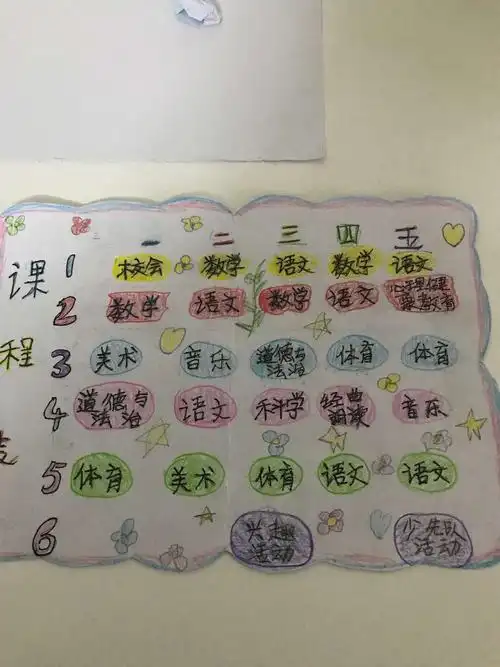 一 二 三 四 五
课 1 校会 数学 语文 数学 语文
2 数学 语文 数学 语文 心理健康教育
程 3 美术 音乐 道德与法治 体育 体育
4 道德与法治 语文 科学 经典诵读 音乐
5 体育 美术 体育 语文 语文
6 兴趣活动 少先队活动